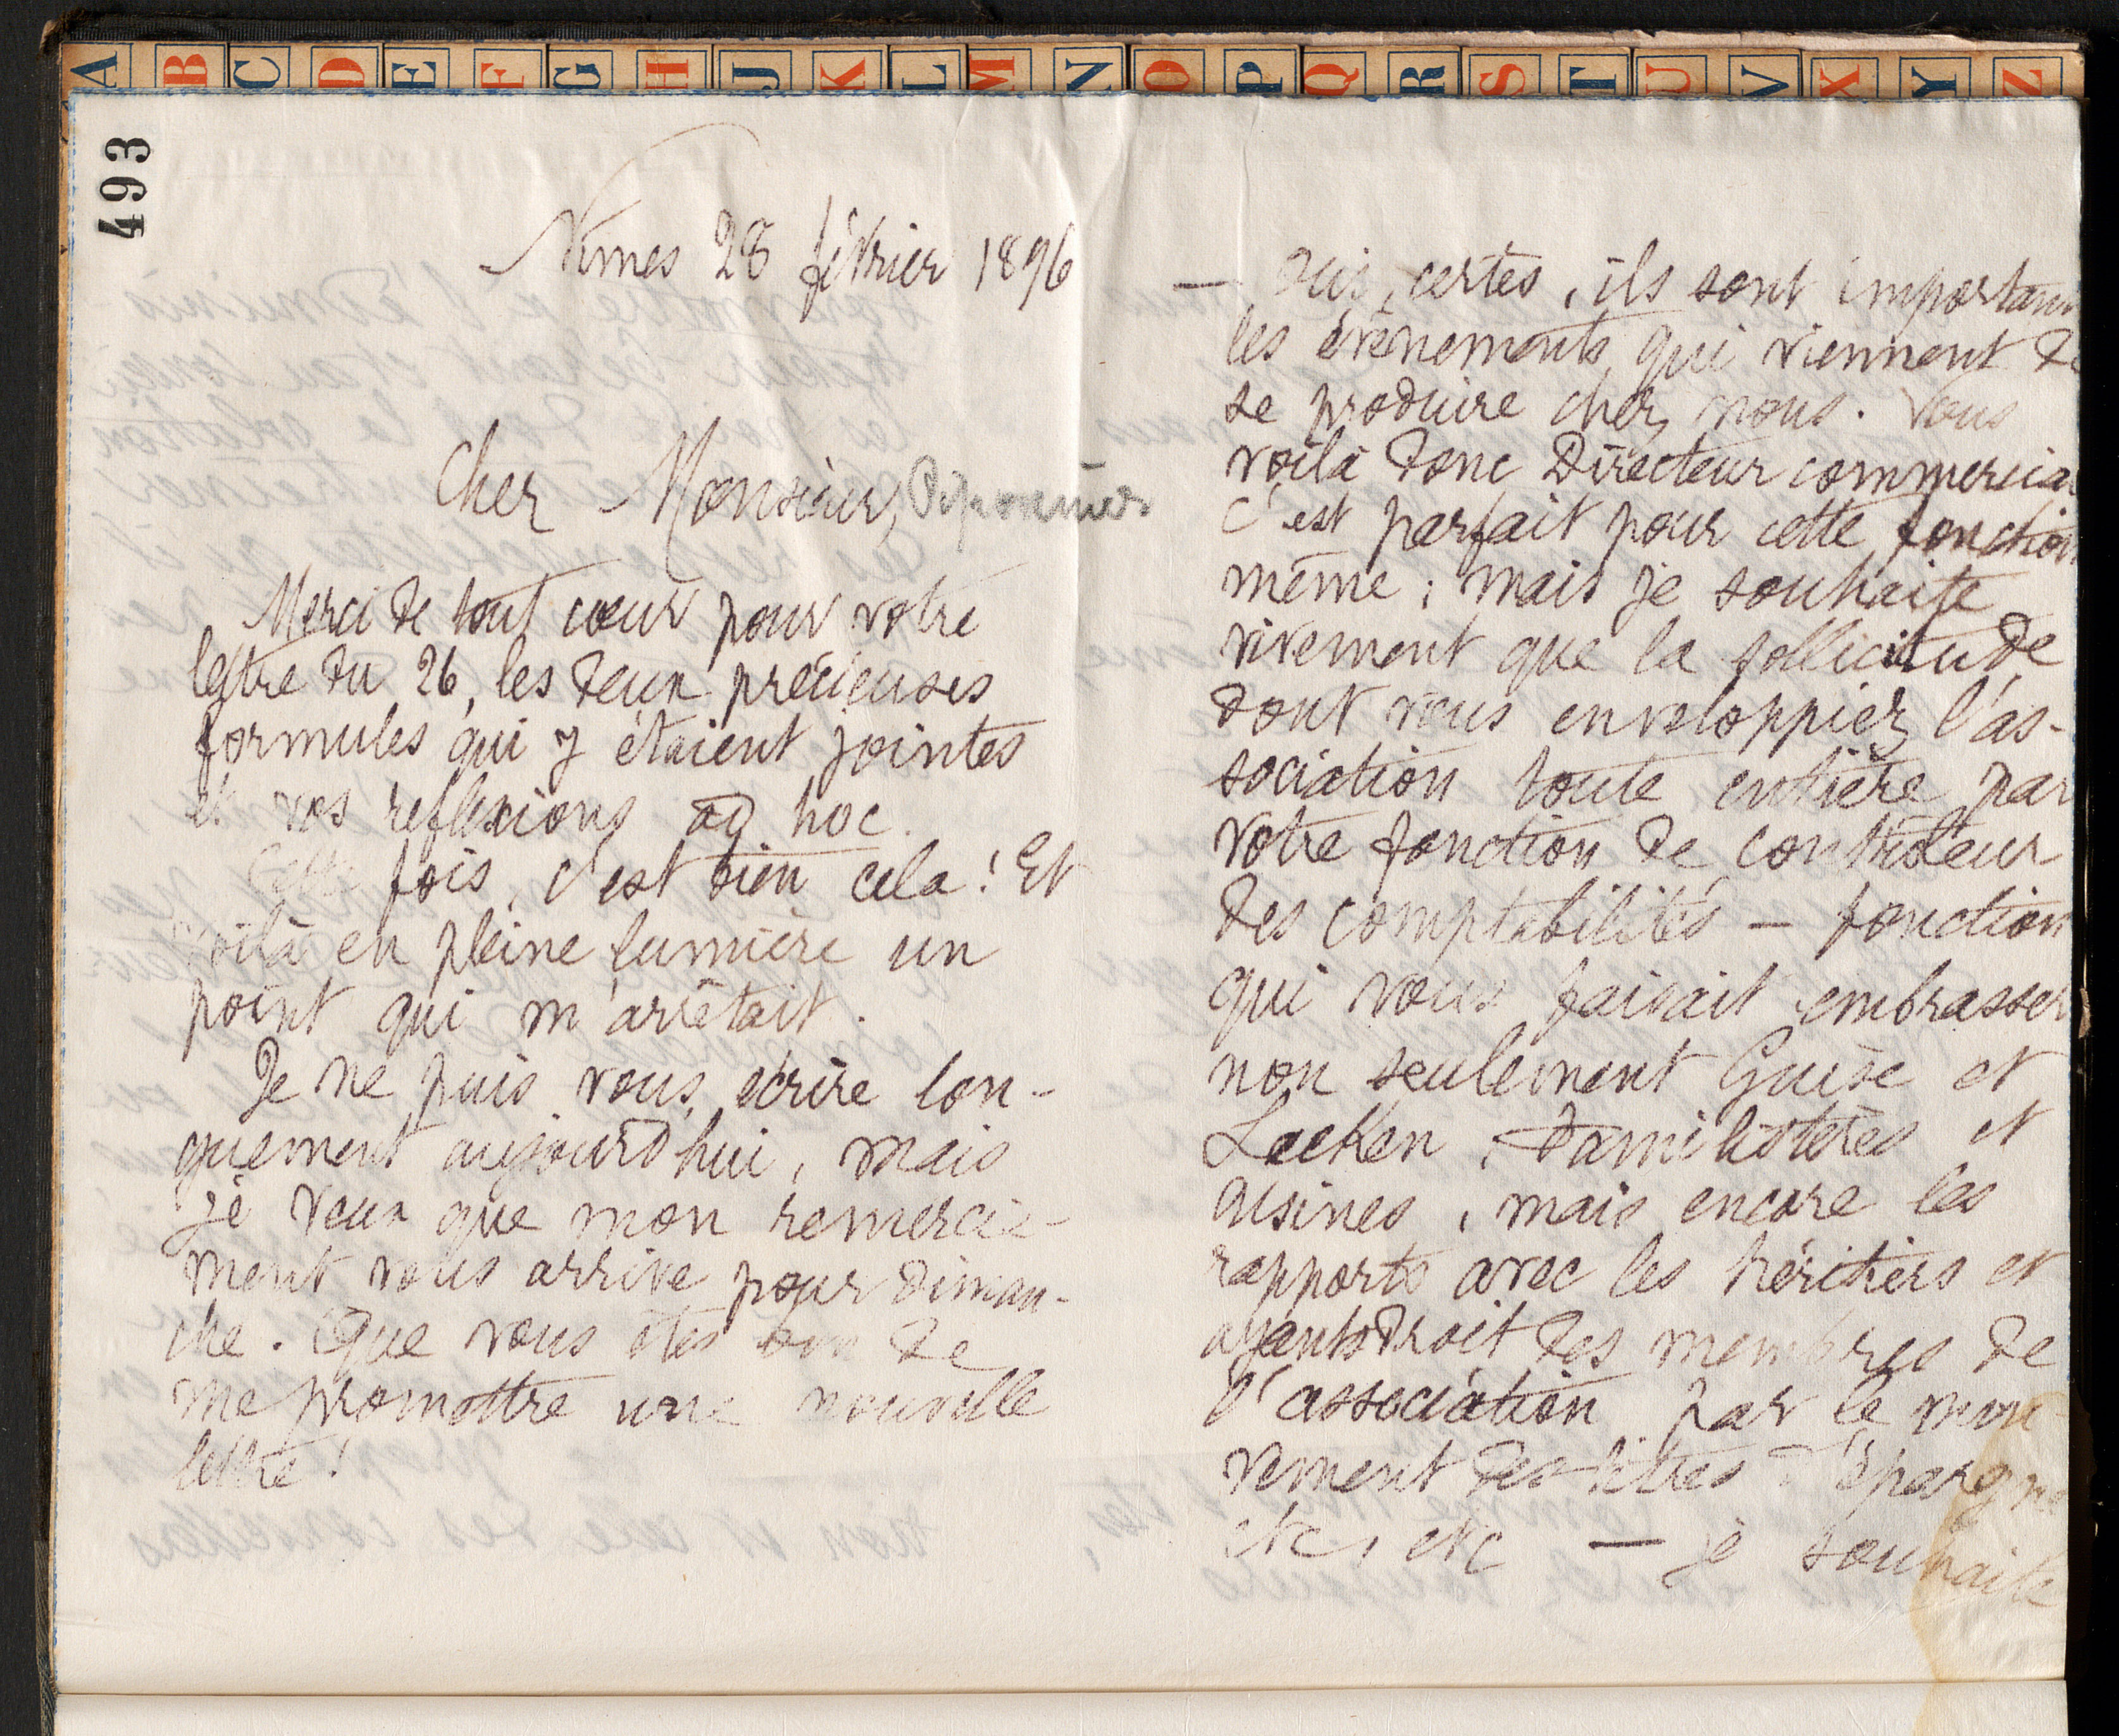 A B C D E F G H J K L M N O P Q R S T U V X Y Z
493
Nimes 28 février 1896
Cher Monsieur, Piponnier
Merci de tout cœur pour votre
lettre du 26, les deux précieuses
formules qui y étaient jointes
et vos reflexions ad hoc.
Cette fois, c'est bien cela! Et
voilà en pleine lumière un
point qui m'arrêtait.
Je ne puis vous écrire lon-
guement aujourd'hui, mais
je veux que mon remercie-
ment vous arrive pour diman-
che. Que vous êtes bon de
me promettre une nouvelle
lettre!
— Oui, certes, ils sont important
les évènements qui viennent de
se produire chez nous. Vous
voilà donc Directeur commercial
c'est parfait pour cette fonction
même; mais je souhaite
vivement que la sollicitude
dont vous enveloppiez l'as-
sociation toute entière par
votre fonction de contrôleur
des comptabilités — fonction
qui vous faisait embrasser
non seulement Guise et
Laeken, familistères et
usines, mais encore les
rapports avec les héritiers et
ayants droit des membres de
l'association par le mou-
vement des titres d'épargne
etc, etc — je souhaite